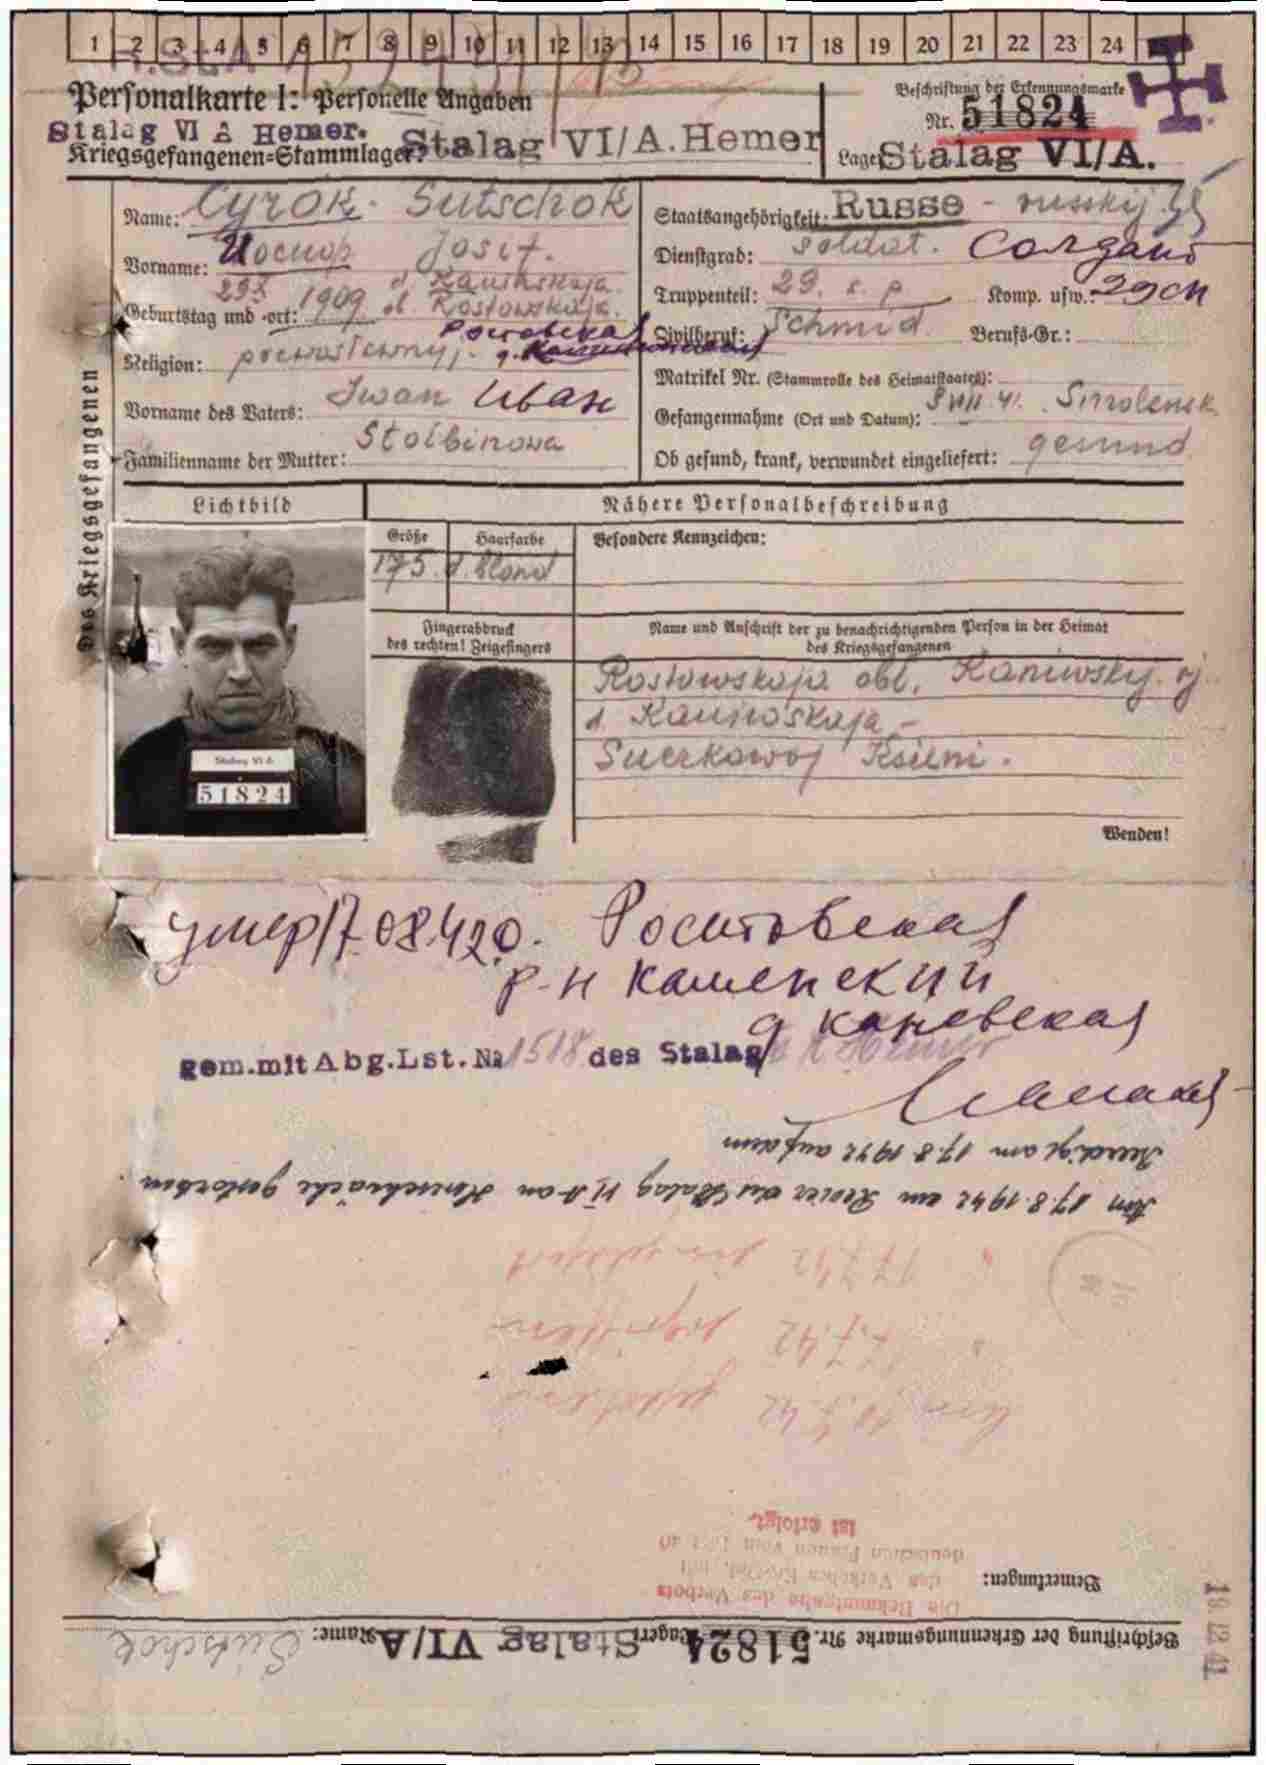 1 2 3 4 5 6 7 8 9 10 11 12 13 14 15 16 17 18 19 20 21 22 23 24
Personalkarte I: Personelle Angaben
Beschriftung der Erkennungsmarke
Nr. 51824
Stalag VI A Hemer.
Kriegsgefangenen-Stammlager: Stalag VI/A. Hemer
Lager: Stalag VI/A.
Des Kriegsgefangenen
Name: Сучок. Sutschok
Vorname: Иосиф Josif.
Geburtstag und -ort: 1909 d. Kaninskaja. o. Rostowskaja.
Ростовская
Religion: prawoslawnyj.
Vorname des Vaters: Iwan Иван
Familienname der Mutter: Stolbinowa
Staatsangehörigkeit: Russe - russkij
Dienstgrad: soldat. Солдат
Truppenteil: 29. s. p Komp. usw.: 29 сп
Zivilberuf: Schmid. Berufs-Gr.:
Matrikel Nr. (Stammrolle des Heimatstaates):
Gefangennahme (Ort und Datum): 8 VIII. 41. Smolensk
Ob gesund, krank, verwundet eingeliefert: gesund.
Lichtbild
Nähere Personalbeschreibung
Größe Haarfarbe Besondere Kennzeichen:
175. d. blond
Fingerabdruck
des rechten! Zeigefingers
Name und Anschrift der zu benachrichtigenden Person in der Heimat
des Kriegsgefangenen
Rostowskaja obl. Kaniwskij rj.
d. Kaninoskaja -
Suczkowoj Ksieni.
Stalag VI A
51824
Wenden!
умер 17.08.42г. Ростовская
р-н Каменский
д Каневская
gem. mit Abg. Lst. № 1518 des Stalag VI A Hemer
Beerdigt am 17.8.1942 auf dem
Am 17.8.1942 im Revier des Stalag VI A an Herzschwäche gestorben
17.7.42
17.7.42
Die Bekanntgabe des Verbots
des Verkehrs Kr.Gef. mit
deutschen Frauen vom 10.1.40
ist erfolgt.
Bemerkungen:
Beschriftung der Erkennungsmarke Nr. 51824 Lager: Stalag VI/A Name: Sutschok
19.12.41